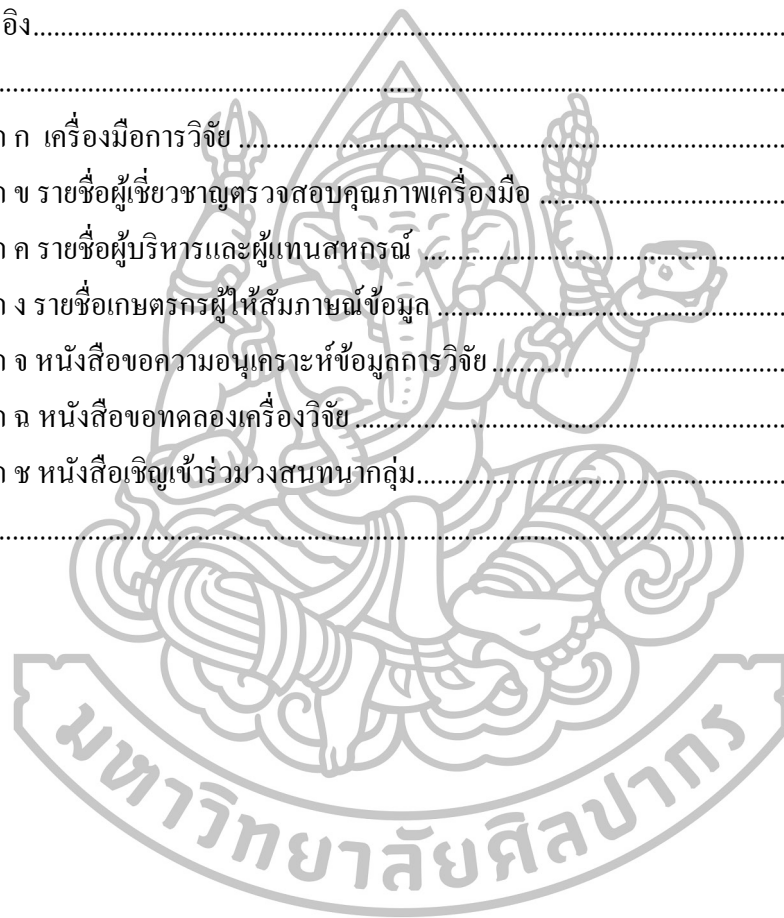 อิง..........................................................................................
..........................................................................................
ก เครื่องมือการวิจัย ..........................................................................................
ข รายชื่อผู้เชี่ยวชาญตรวจสอบคุณภาพเครื่องมือ ..........................................................
ค รายชื่อผู้บริหารและผู้แทนสหกรณ์ ..........................................................
ง รายชื่อเกษตรกรผู้ให้สัมภาษณ์ข้อมูล ..........................................................
จ หนังสือขอความอนุเคราะห์ข้อมูลการวิจัย ..........................................................
ฉ หนังสือขอทดลองเครื่องวิจัย ..........................................................
ช หนังสือเชิญเข้าร่วมวงสนทนากลุ่ม..........................................................
..........................................................................................
มหาวิทยาลัยศิลปากร